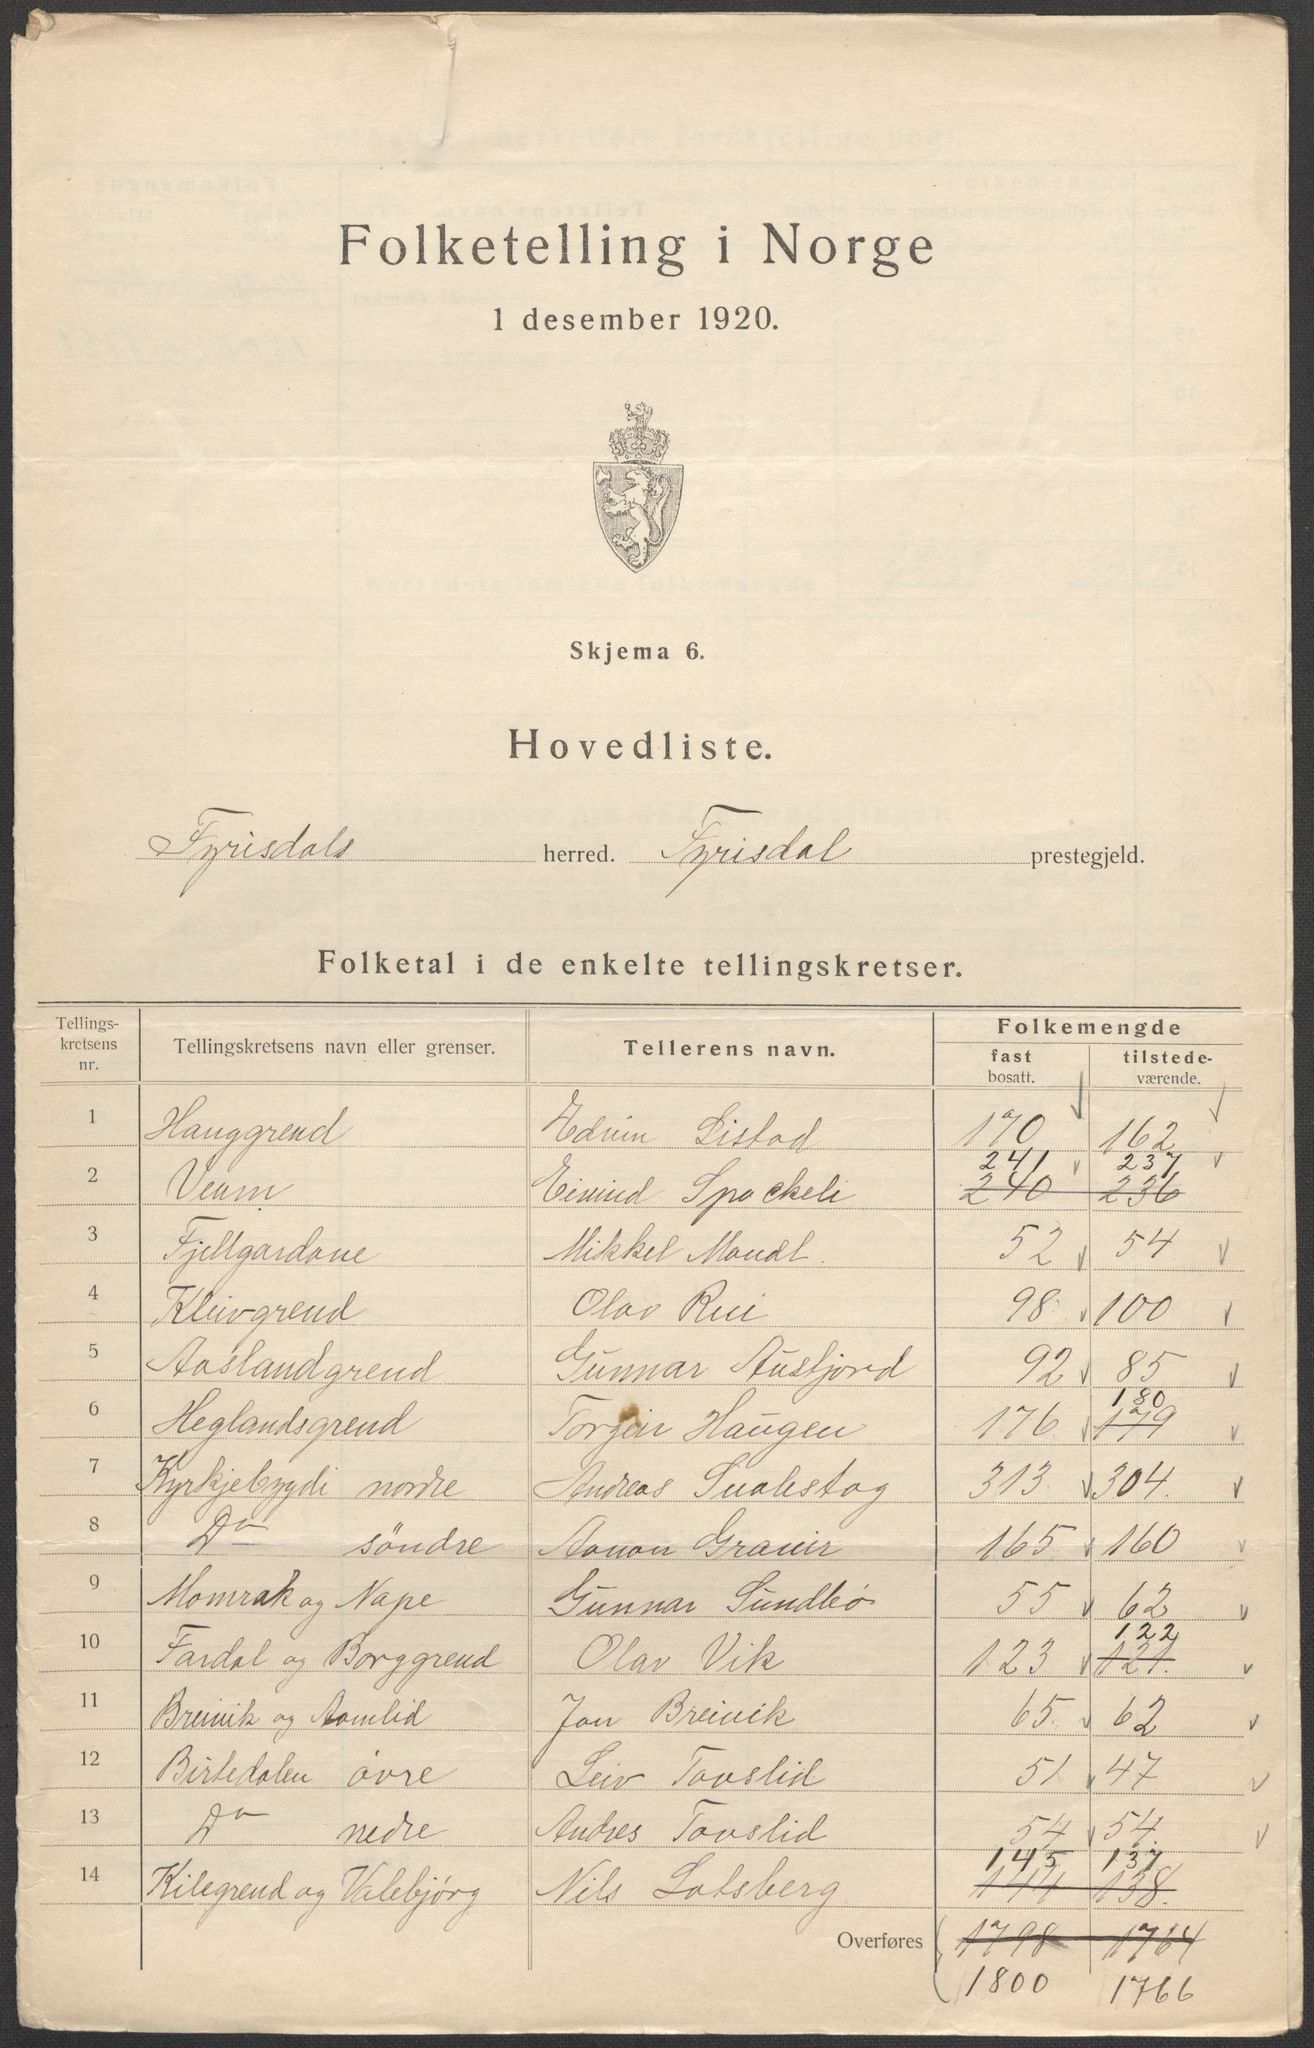 Folketelling i Norge
1 desember 1920.
Skjema 6.
Hovedliste.
Fyrisdals herred. Fyrisdal prestegjeld.
Folketal i de enkelte tellingskretser.
Tellings-kretsens nr. Tellingskretsens navn eller grenser. Tellerens navn. Folkemengde fast bosatt. tilstede-værende.
1 Hauggrend Edvin Listad 170 162
241 237
2 Veum Eivind Spockeli 240 236
3 Fjellgardane Mikkel Moudl. 52 54
4 Kleivgrend Olav Rui 98 100
5 Aaslandgrend Gunnar Ausfjord 92 85
180
6 Heglandsgrend Torgeir Haugen 176 179
7 Kyrkjebygdi nordre Andreas 313 304.
8 Do søndre Aanon Graver 165 160
9 Momrak og Nape Gunnar Sundbø 55 62
122
10 Fardal og Borggrend Olav Vik 123 121.
11 Breivik og Aamlid Jon Breivik 65. 62
12 Birtedalen øvre Leiv Tovslid 51 47
13 Do nedre Andres Tovslid 54 54
145 137
14 Kilegrend og Valebjørg Nils Lotsberg 144 138.
Overføres 1798 1764
1800 1766